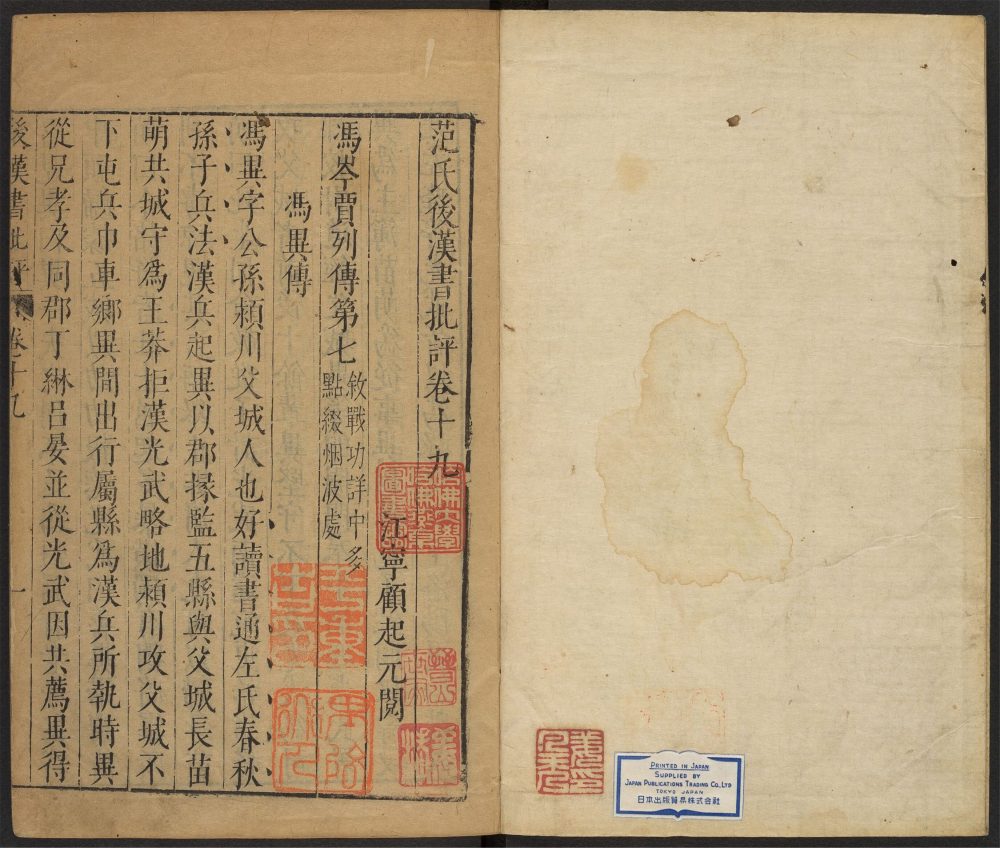 范氏後漢書批評卷十九
江寧顧起元閱
馮岑賈列傳第七
敘戰功詳中多
點綴烟波處
馮異傳
馮異字公孫潁川父城人也好讀書通左氏春秋
孫子兵法漢兵起異以郡掾監五縣與父城長苗
萌共城守爲王莽拒漢光武略地潁川攻父城不
下屯兵巾車鄉異間出行屬縣爲漢兵所執時異
從兄孝及同郡丁綝呂晏並從光武因共薦異得
後漢書批評
卷十九
一
哈佛大學
哈佛燕京
圖書
PRINTED IN JAPAN
SUPPLIED BY
JAPAN PUBLICATIONS TRADING CO., LTD
TOKYO JAPAN
日本出版貿易株式会社